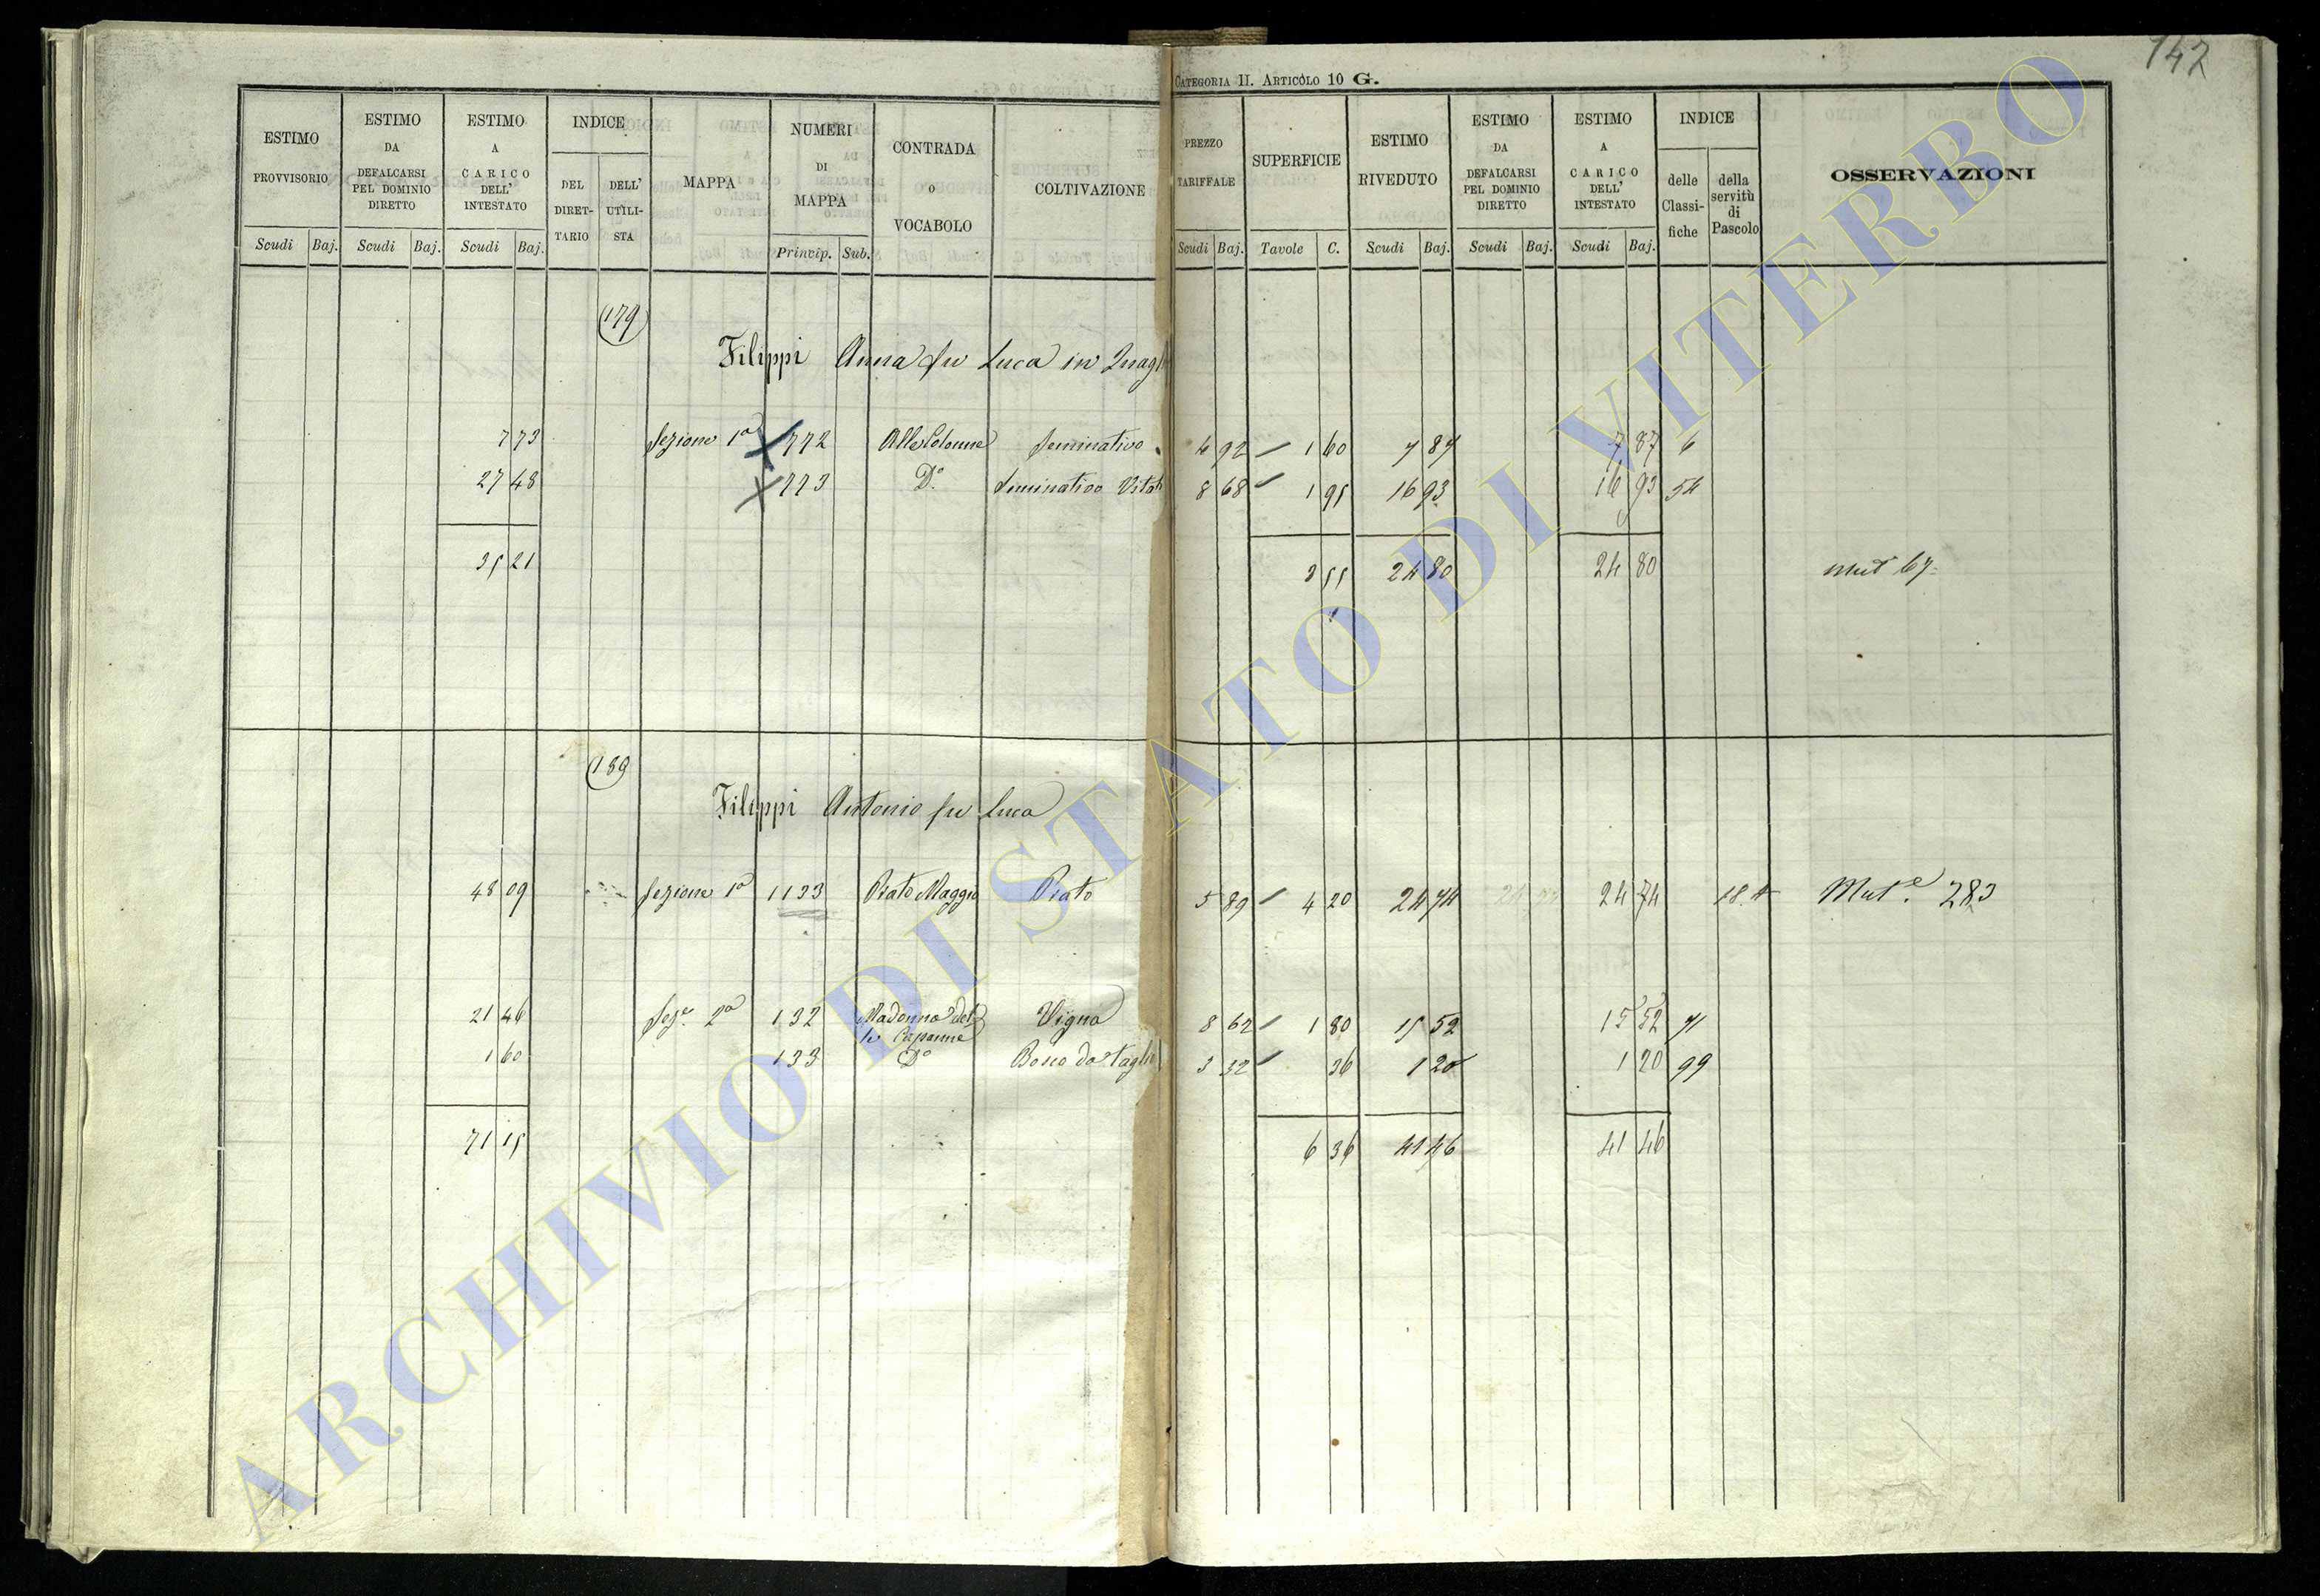 142
CATEGORIA II. ARTICOLO 10 G.
ESTIMO PROVVISORIO
Scudi Baj.
ESTIMO DA DEFALCARSI PEL DOMINIO DIRETTO
Scudi Baj.
ESTIMO A CARICO DELL' INTESTATO
Scudi Baj.
INDICE
DEL DIRET- TARIO
DELL' UTILI- STA
MAPPA
NUMERI DI MAPPA
Princip. Sub.
CONTRADA o VOCABOLO
COLTIVAZIONE
PREZZO TARIFFALE
Scudi Baj.
SUPERFICIE
Tavole C.
ESTIMO RIVEDUTO
Scudi Baj.
ESTIMO DA DEFALCARSI PEL DOMINIO DIRETTO
Scudi Baj.
ESTIMO A CARICO DELL' INTESTATO
Scudi Baj.
INDICE
delle Classi- fiche
della servitù di Pascolo
OSSERVAZIONI
179
Filippi Anna fu Luca in
7 73 Sezione 1a 772 Alle Colonne Seminativo 4 92 1 60 7 87 7 87 6
27 48 773 Do Seminativo 8 68 1 95 16 93 16 93 54
35 21 3 55 24 80 24 80 mut 67
189
Filippi Antonio fu Luca
48 09 Sezione 1a 1133 Prato Maggio Prato 5 89 4 20 24 74 24 74 18. Mute. 283
21 46 Seze. 2a 132 Madonna del le Capanne Vigna 8 62 1 80 15 52 15 52 71
1 60 133 Do Bosco da Taglio 3 32 36 1 20 1 20 99
71 15 6 36 41 46 41 46
ARCHIVIO DI STATO DI VITERBO